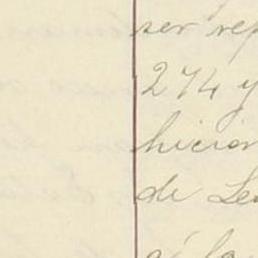 ser rep
274 y
hicier
de Le